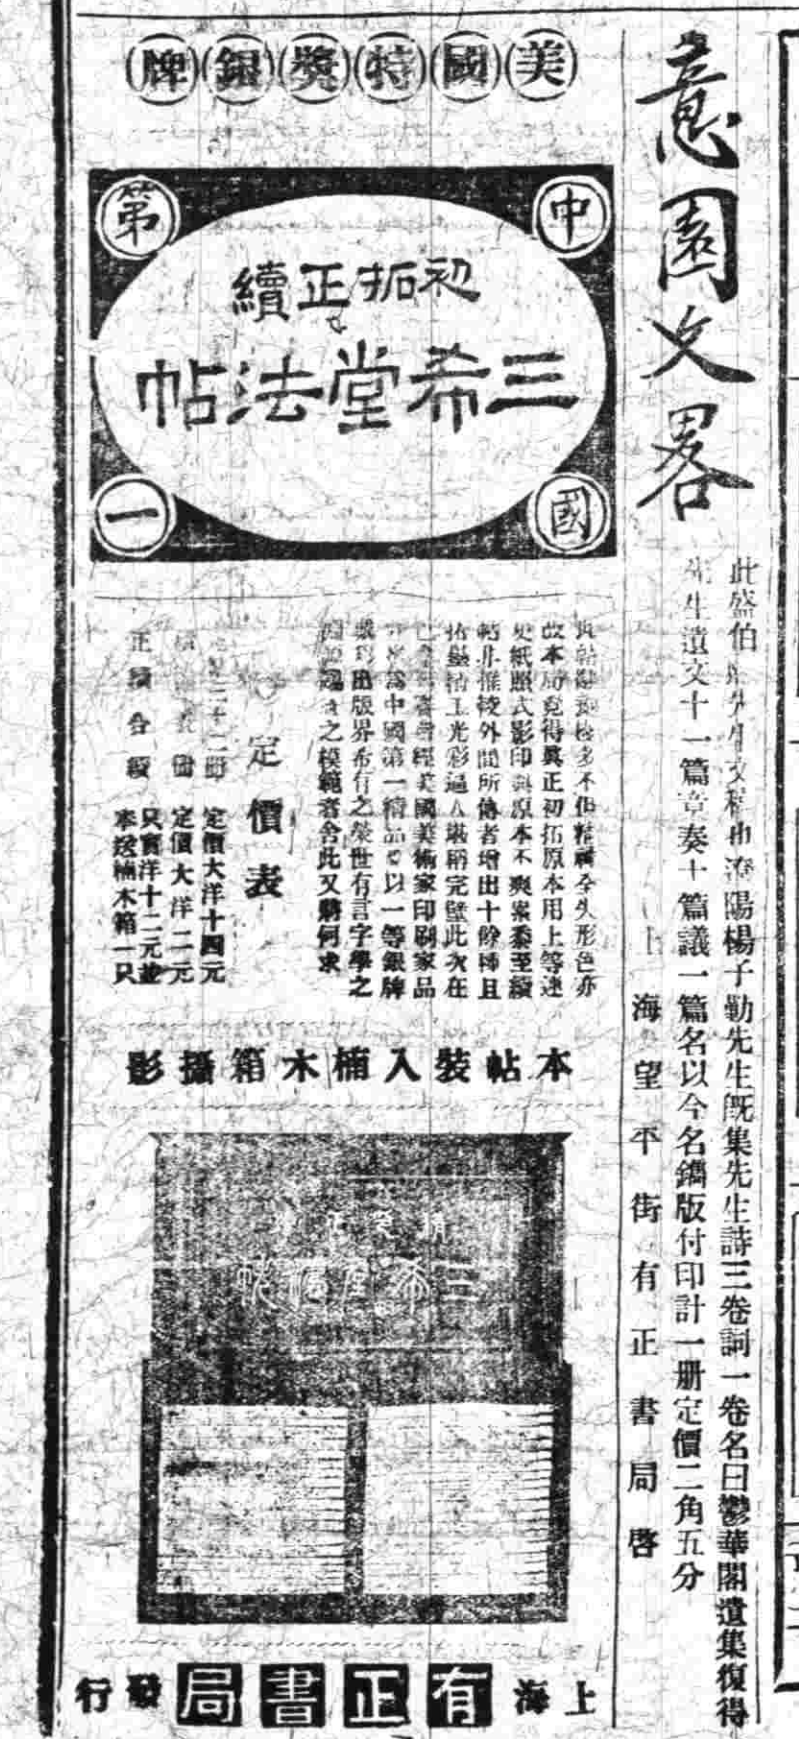 意園文畧
此盛伯先生文稿由遼陽楊子勤先生既集先生詩三卷詞一卷名曰鬱華閣遺集復得
先生遺文十一篇章奏十篇議一篇名以今名鐫版付印計一册定價二角五分
上海望平街有正書局啓
美國特獎銀牌
中國第一
初拓正續
三希堂法帖
多不但精神全失形色亦
故本局覓得真正初拓原本用上等連
史紙照式影印與原本不爽累黍至續
帖非惟較外間所傳者增出十餘種且
拓墨精工光彩逼人堪稱完璧此次在
經美國美術家印刷家品
為中國第一精品以一等銀牌
出版界希有之榮世有言字學之
之模範者舍此又將何求
定價表
三十二册 定價大洋十四元
册 定價大洋二元
正續合購 只賣洋十二元並
奉送楠木箱一只
本帖裝入楠木箱攝影
三希堂法帖
上海有正書局發行